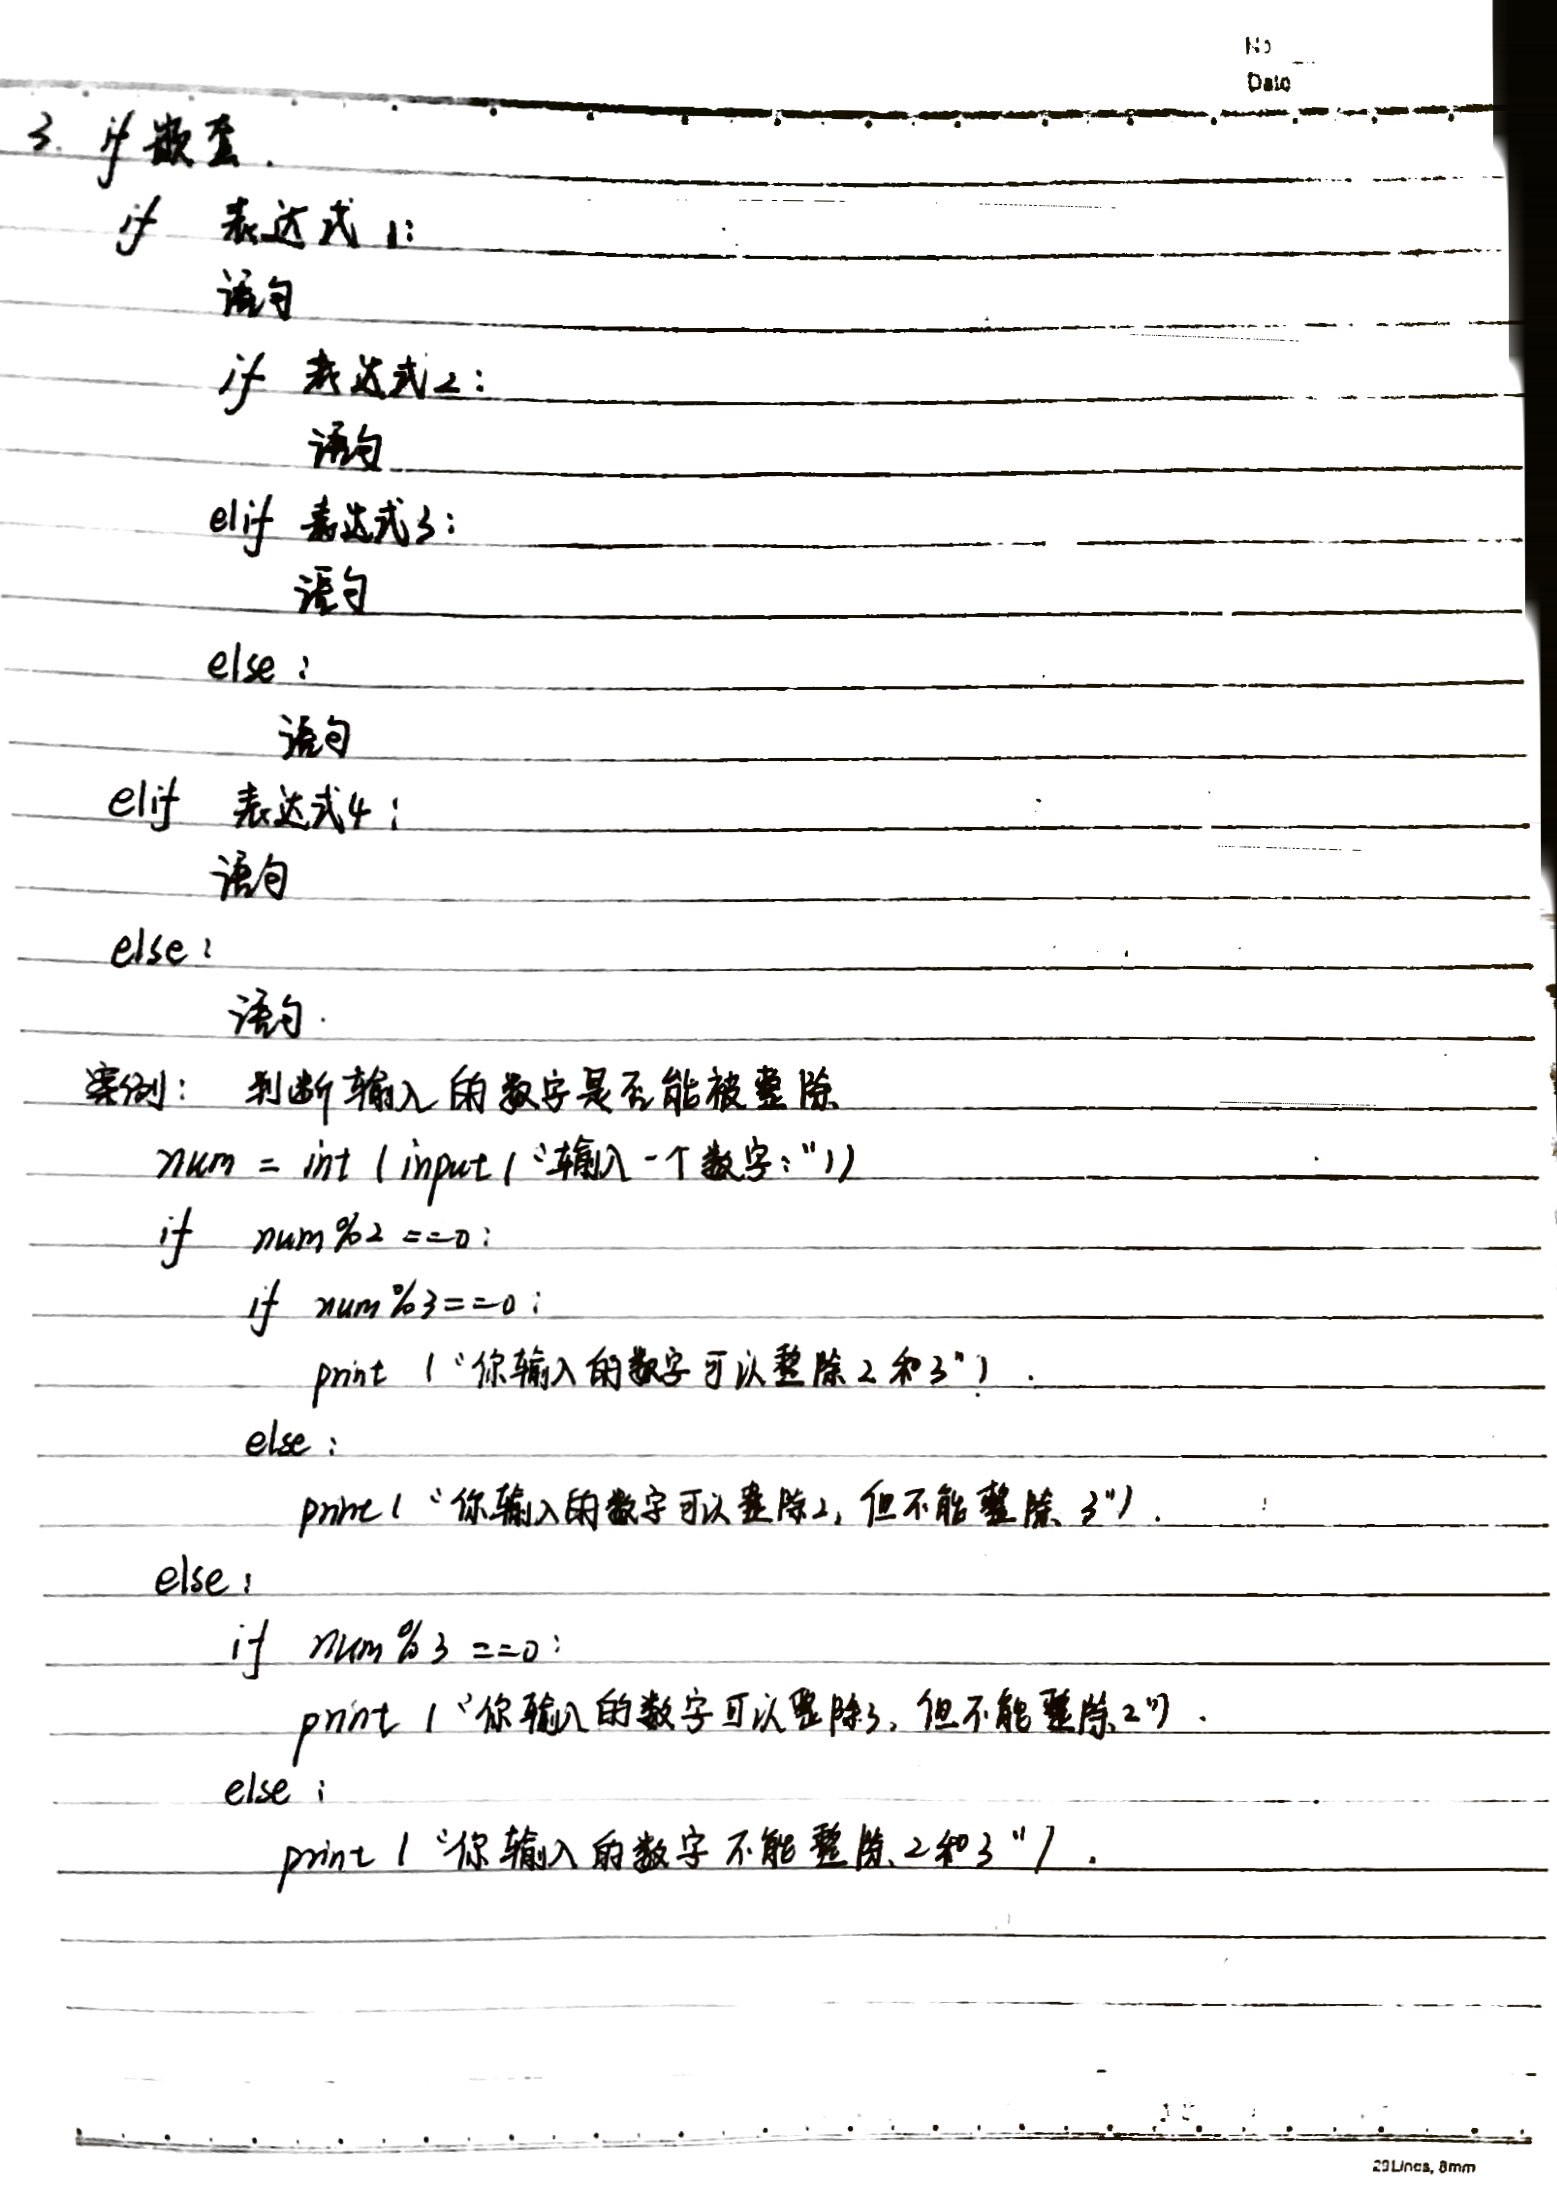 No
Date
3. if 嵌套.
if 表达式1:
语句
if 表达式2:
语句
elif 表达式3:
语句
else:
语句
elif 表达式4:
语句
else:
语句.
案例: 判断输入的数字是否能被整除
num = int (input("输入一个数字:"))
if num%2 ==0:
if num%3==0:
print ("你输入的数字可以整除2和3").
else:
print("你输入的数字可以整除2, 但不能整除3").
else:
if num%3 ==0:
print ("你输入的数字可以整除3, 但不能整除2").
else:
print ("你输入的数字不能整除2和3").
29Lines, 8mm